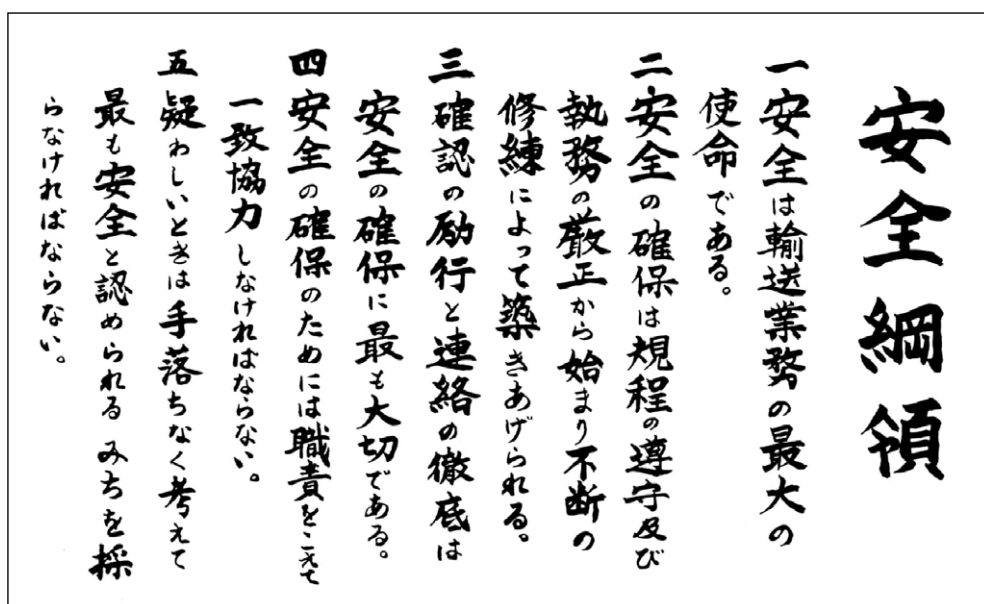 安全綱領
一 安全は輸送業務の最大の
使命である。
二 安全の確保は規程の遵守及び
執務の厳正から始まり不断の
修練によって築きあげられる。
三 確認の励行と連絡の徹底は
安全の確保に最も大切である。
四 安全の確保のためには職責をこえて
一致協力しなければならない。
五 疑わしいときは手落ちなく考えて
最も安全と認められるみちを採
らなければならない。